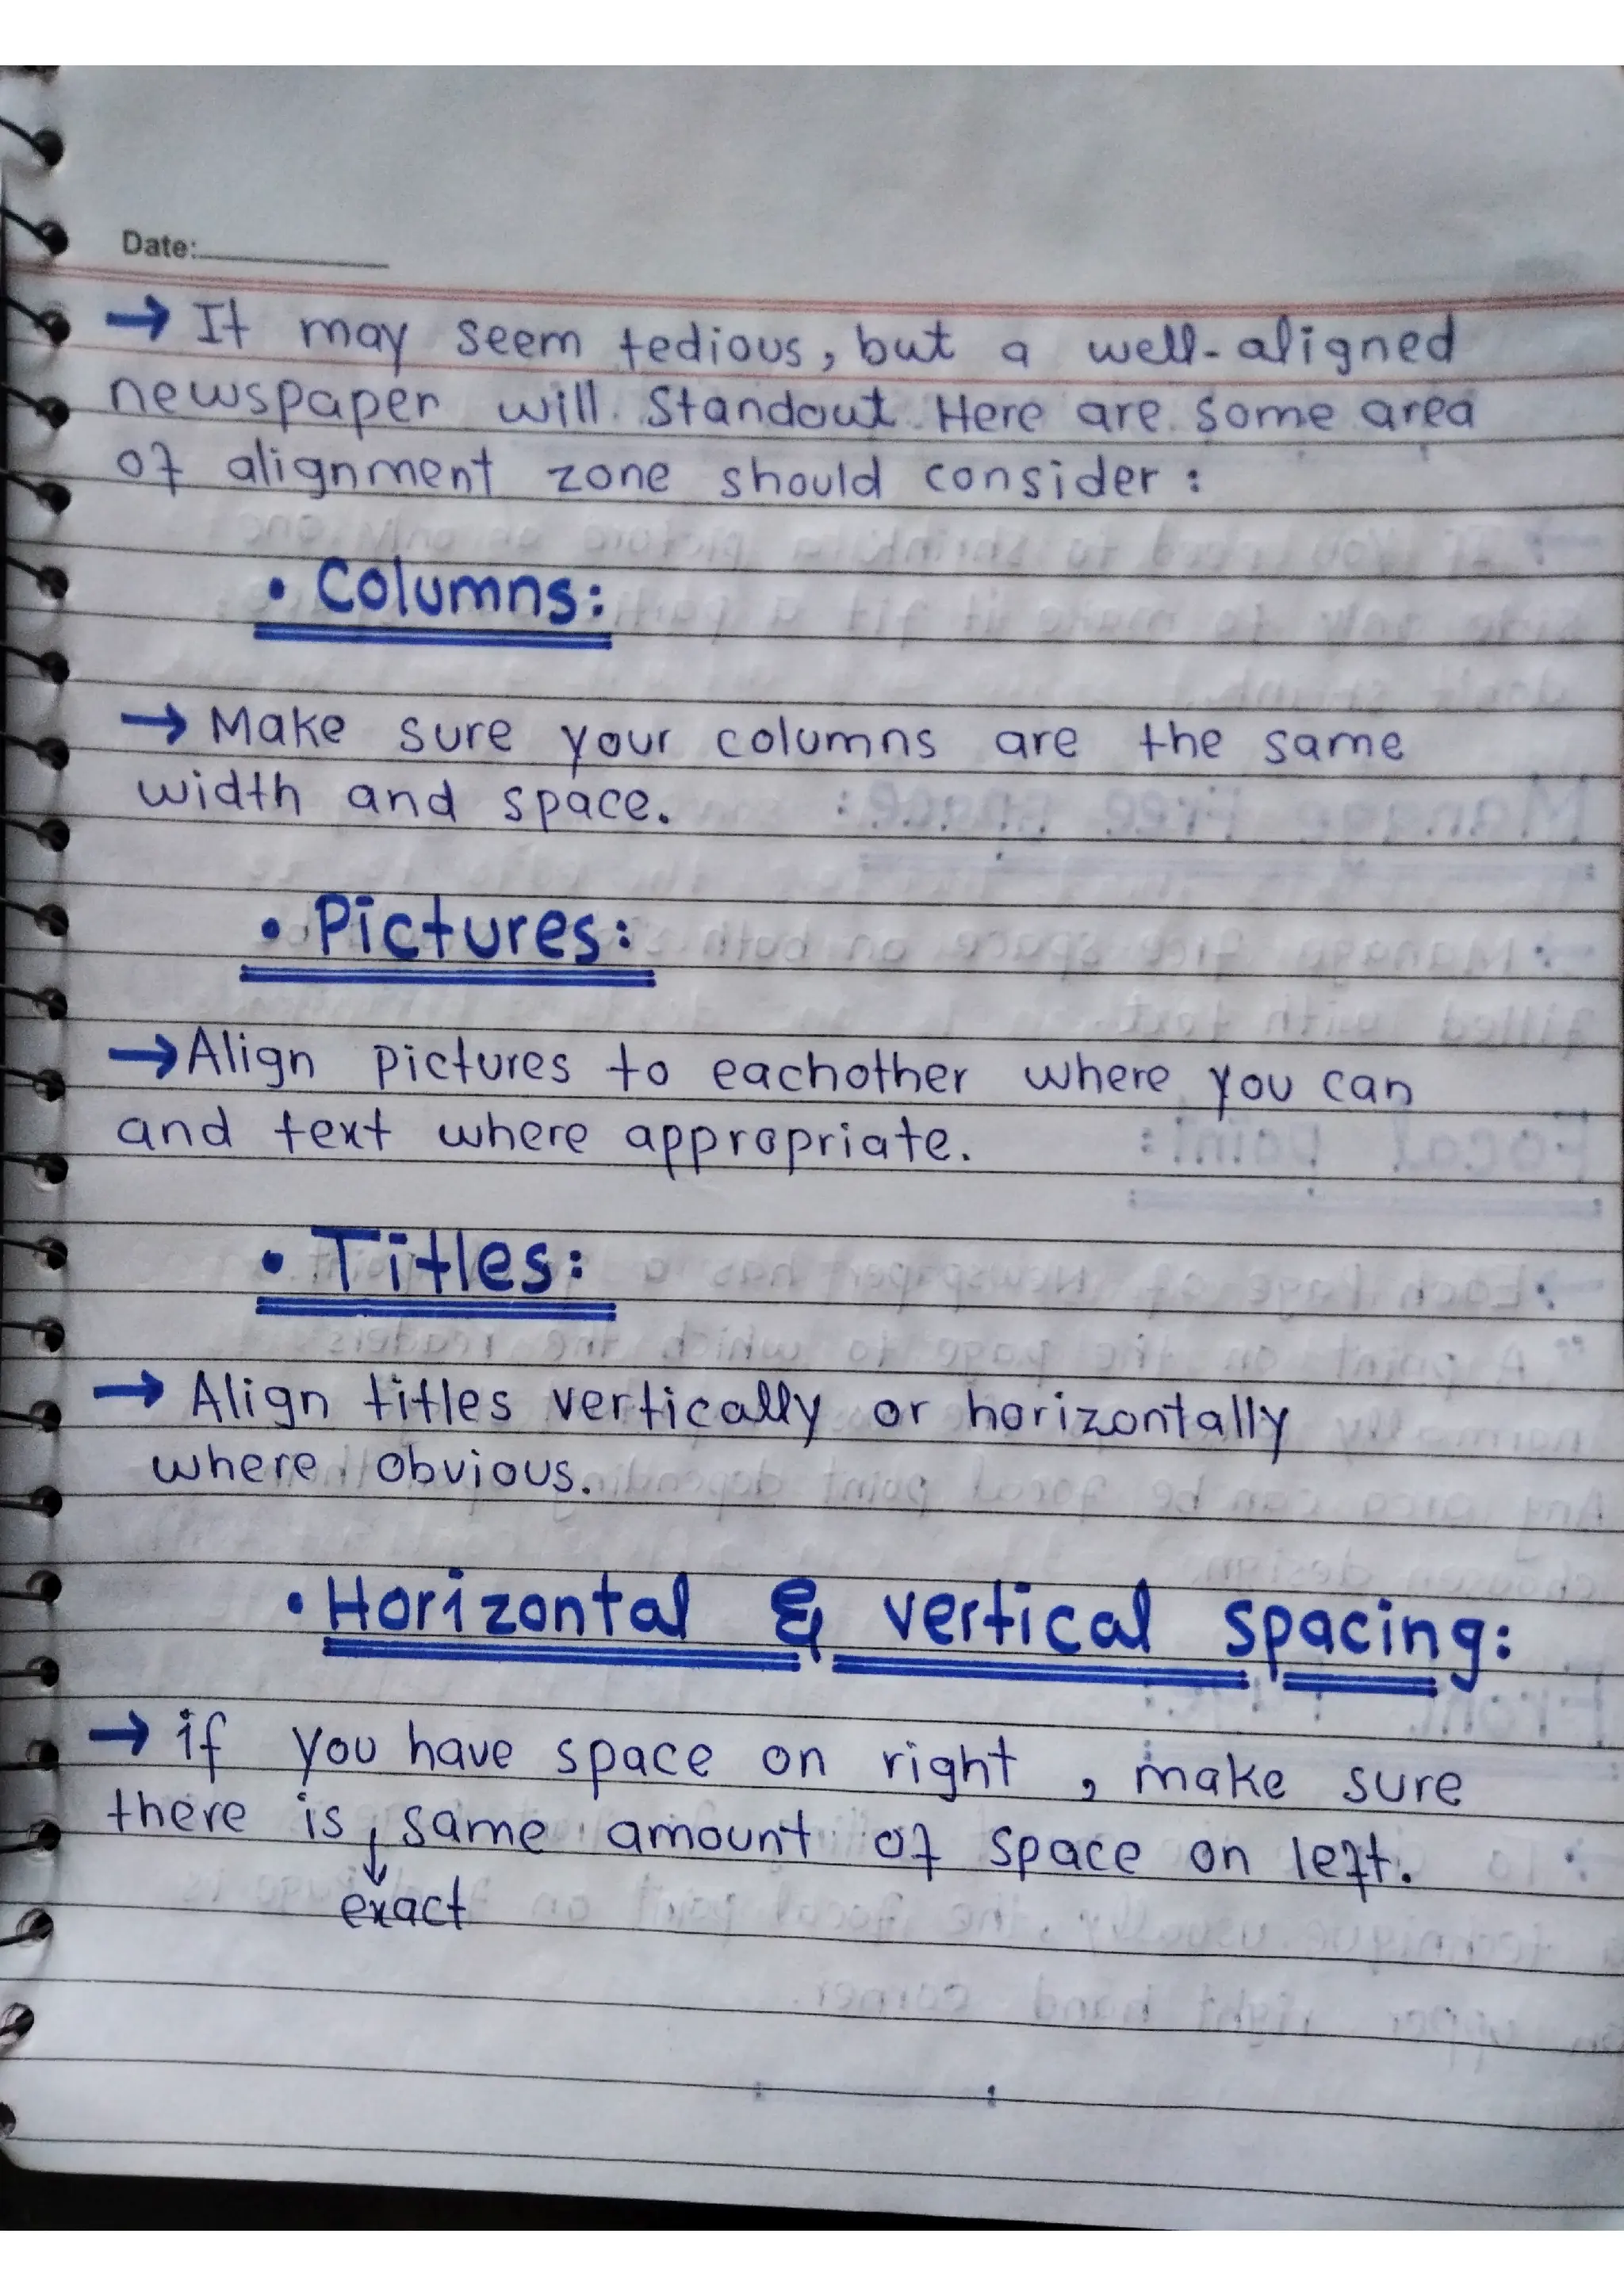 Date:
→ It may seem tedious, but a well-aligned
newspaper will Standout. Here are some area
of alignment zone should consider :
• Columns:
→ Make sure your columns are the same
width and space.
• Pictures:
→ Align pictures to eachother where you can
and text where appropriate.
• Titles:
→ Align titles vertically or horizontally
where obvious.
• Horizontal & vertical spacing:
→ if you have space on right , make sure
there is ↓ same amount of space on left.
exact